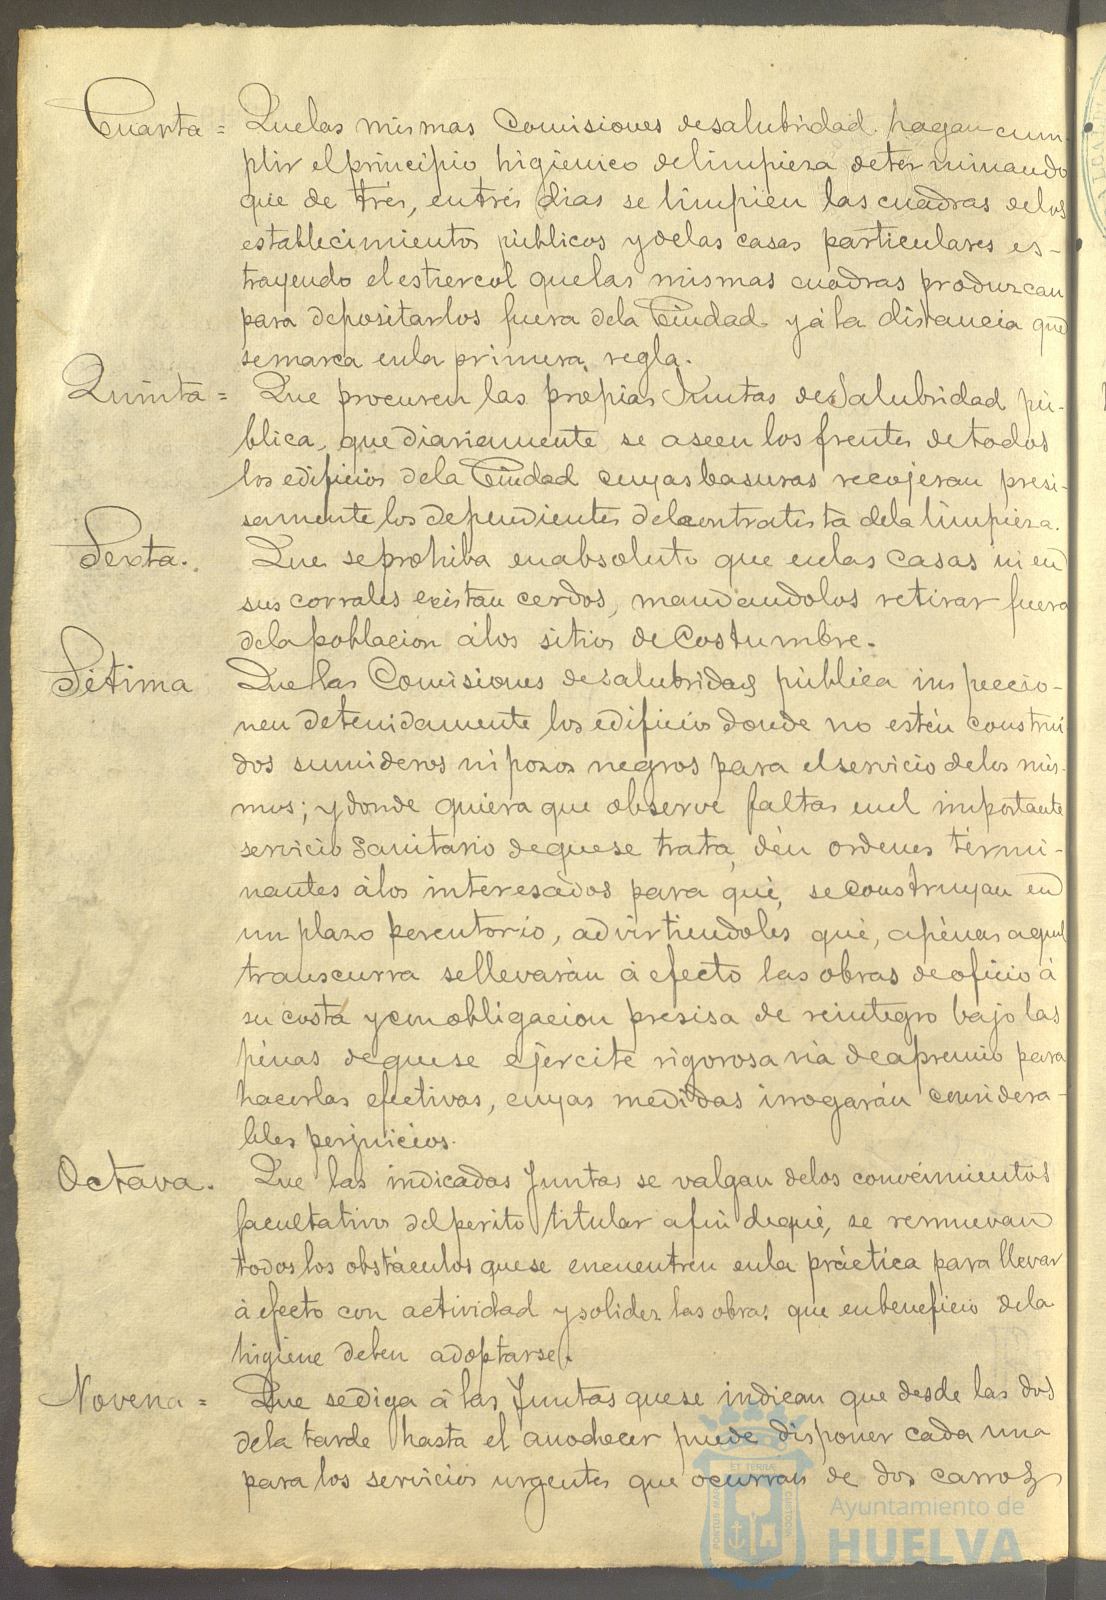 Cuarta = Que las mismas Comisiones de salubridad hagan cum-
plir el principio higiénico de limpieza determinando
que de trés, en trés dias se limpien las cuadras de los
establecimientos públicos y de las casas particulares es-
trayendo el estiercol que las mismas cuadras produzcan
para depositarlos fuera de la Ciudad y á la distancia que
se marca en la primera regla.
Quinta = Que procuren las propias Juntas de Salubridad pú-
blica, que diariamente se aseen los frentes de todos
los edificios de la Ciudad cuyas basuras recojeran presi-
samente los dependientes del contratista de la limpieza.
Sexta. Que se prohiba en absoluto que en las casas ni en
sus corrales existan cerdos, mandandolos retirar fuera
de la poblacion á los sitios de costumbre.
Sétima Que las Comisiones de salubridad pública inspeccio-
nen detenidamente los edificios donde no estén construi-
dos sumideros ni pozos negros para el servicio de los mis-
mos; y donde quiera que observe faltas en el importante
servicio Sanitario de que se trata, dén ordenes térmi-
nantes á los interesados para qué, se construyan en
un plazo perentorio, advirtiendoles qué, apénas aquel
transcurra se llevarán á efecto las obras de oficio á
su costa y con obligacion presisa de reintegro bajo las
pénas de que se ejercite rigorosa via de apremio para
hacerlas efectivas, cuyas medidas irrogarán considera-
bles perjuicios.
Octava. Que las indicadas Juntas se valgan de los conocimientos
facultativos del perito titular a fin de qué, se remuevan
todos los obstáculos que se encuentren en la práctica para llevar
á efecto con actividad y solidez las obras que en beneficio de la
higiene deben adoptarse.
Novena = Que se diga á las Juntas que se indican que desde las dos
de la tarde hasta el anochecer puede disponer cada una
para los servicios urgentes que ocurran de dos carros
Ayuntamiento de
HUELVA